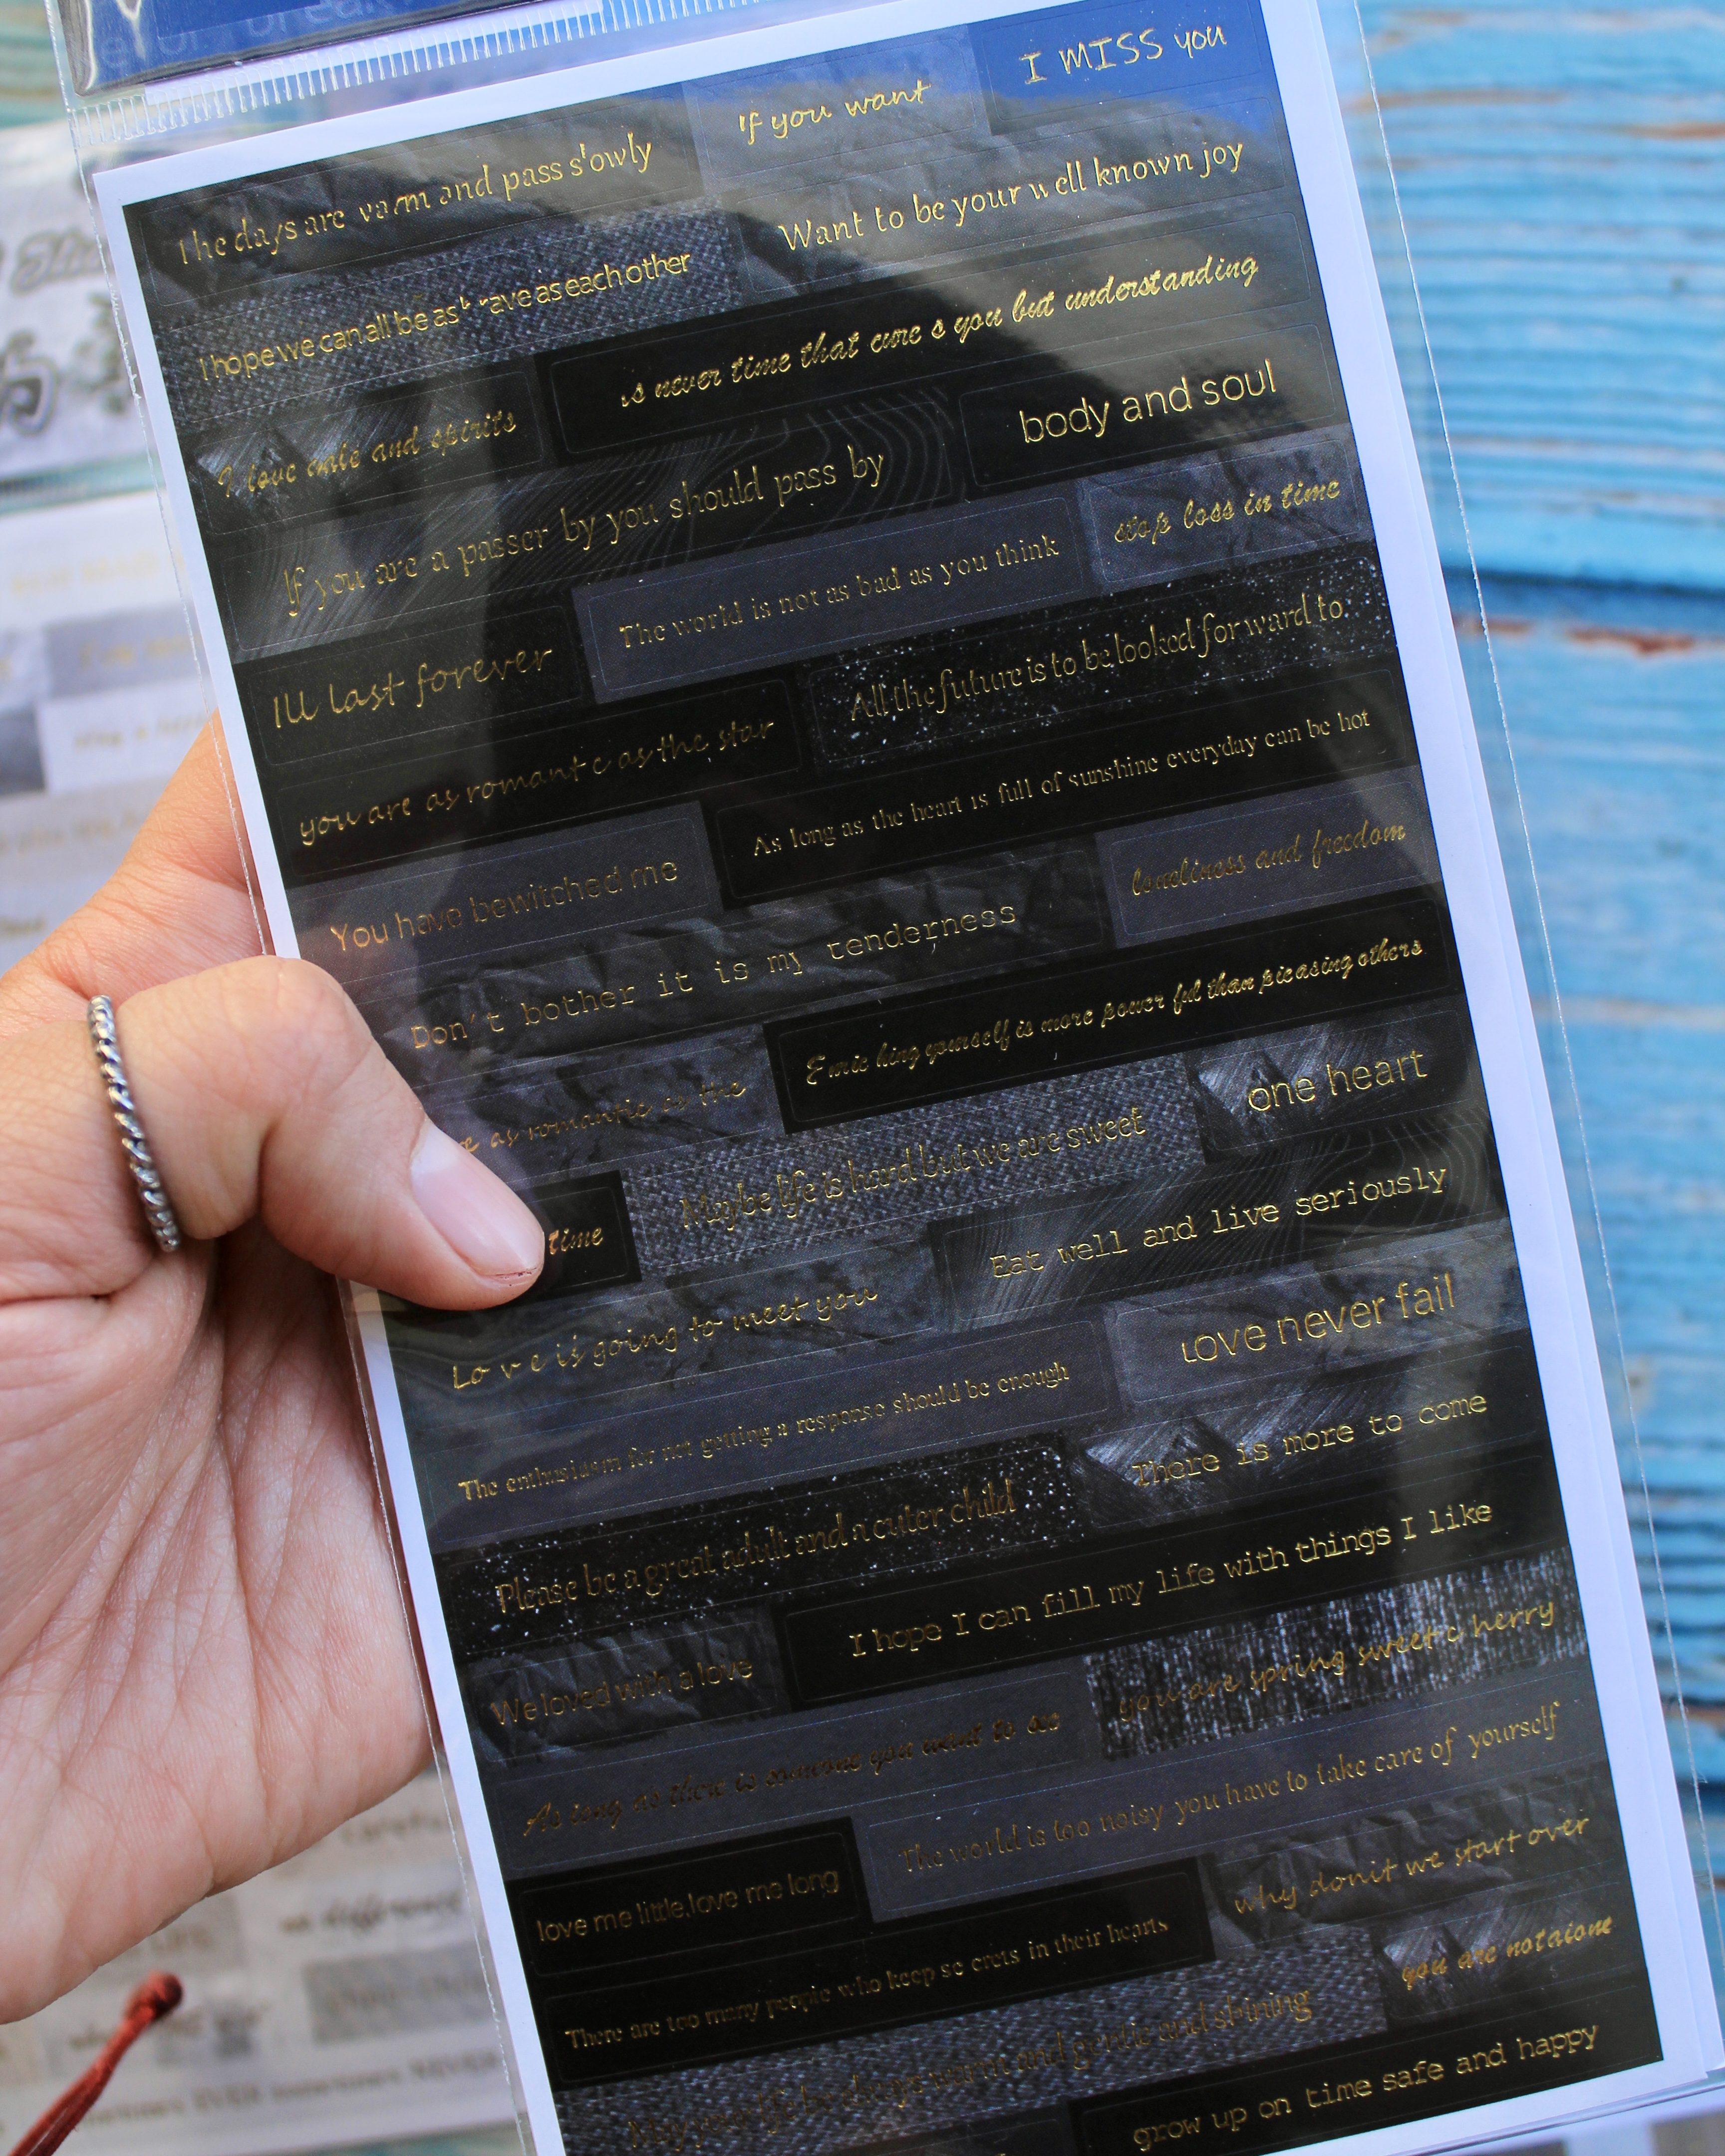 I MISS you
If you want
The days are warm and pass slowly
Want to be your well known joy
I hope we can all be as brave as each other
is never time that cure s you but understanding
I love and spirits
body and soul
If you are a passer by you should pass by
stop loss in time
The world is not as bad as you think
Ill last forever
All the future is to be looked forward to
you are as romant c as the star
As long as the heart is full of sunshine everyday can be hot
You have bewitched me
loneliness and freedom
Don't bother it is my tenderness
Enric hing yourself is more power ful than pleasing others
e as romantic as the
one heart
Maybe life is hard but we are sweet
time
Eat well and live seriously
Lo v e is going to meet you
Love never fail
The enthusidsm for not getting a response should be enough
There is more to come
Please be a great adult and a cuter child
I hope I can fill my life with things I like
We loved with a love
you are spring sweet c herry
As long as there is someone you want to see
The world is too noisy you have to take care of yourself
love me little,love me long
why donit we start over
There are too many people who keep se crets in their hearts
you are notalone
May your life be always warm and gentle and shining
grow up on time safe and happy